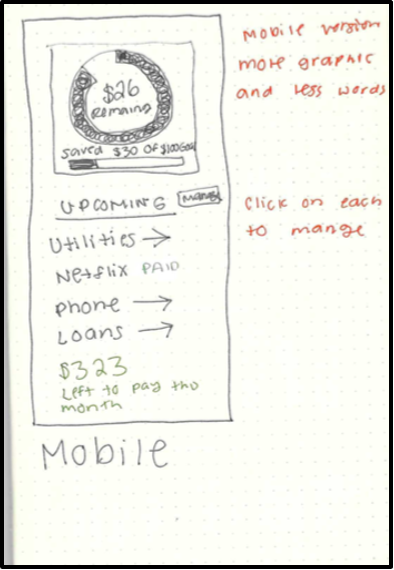 $26
Remaining
Saved $30 of $100 Goal
UPCOMING Manage
Utilities →
Netflix PAID
Phone →
Loans →
$323
Left to pay this
month
Mobile
Mobile version
more graphic
and less words
Click on each
to mange